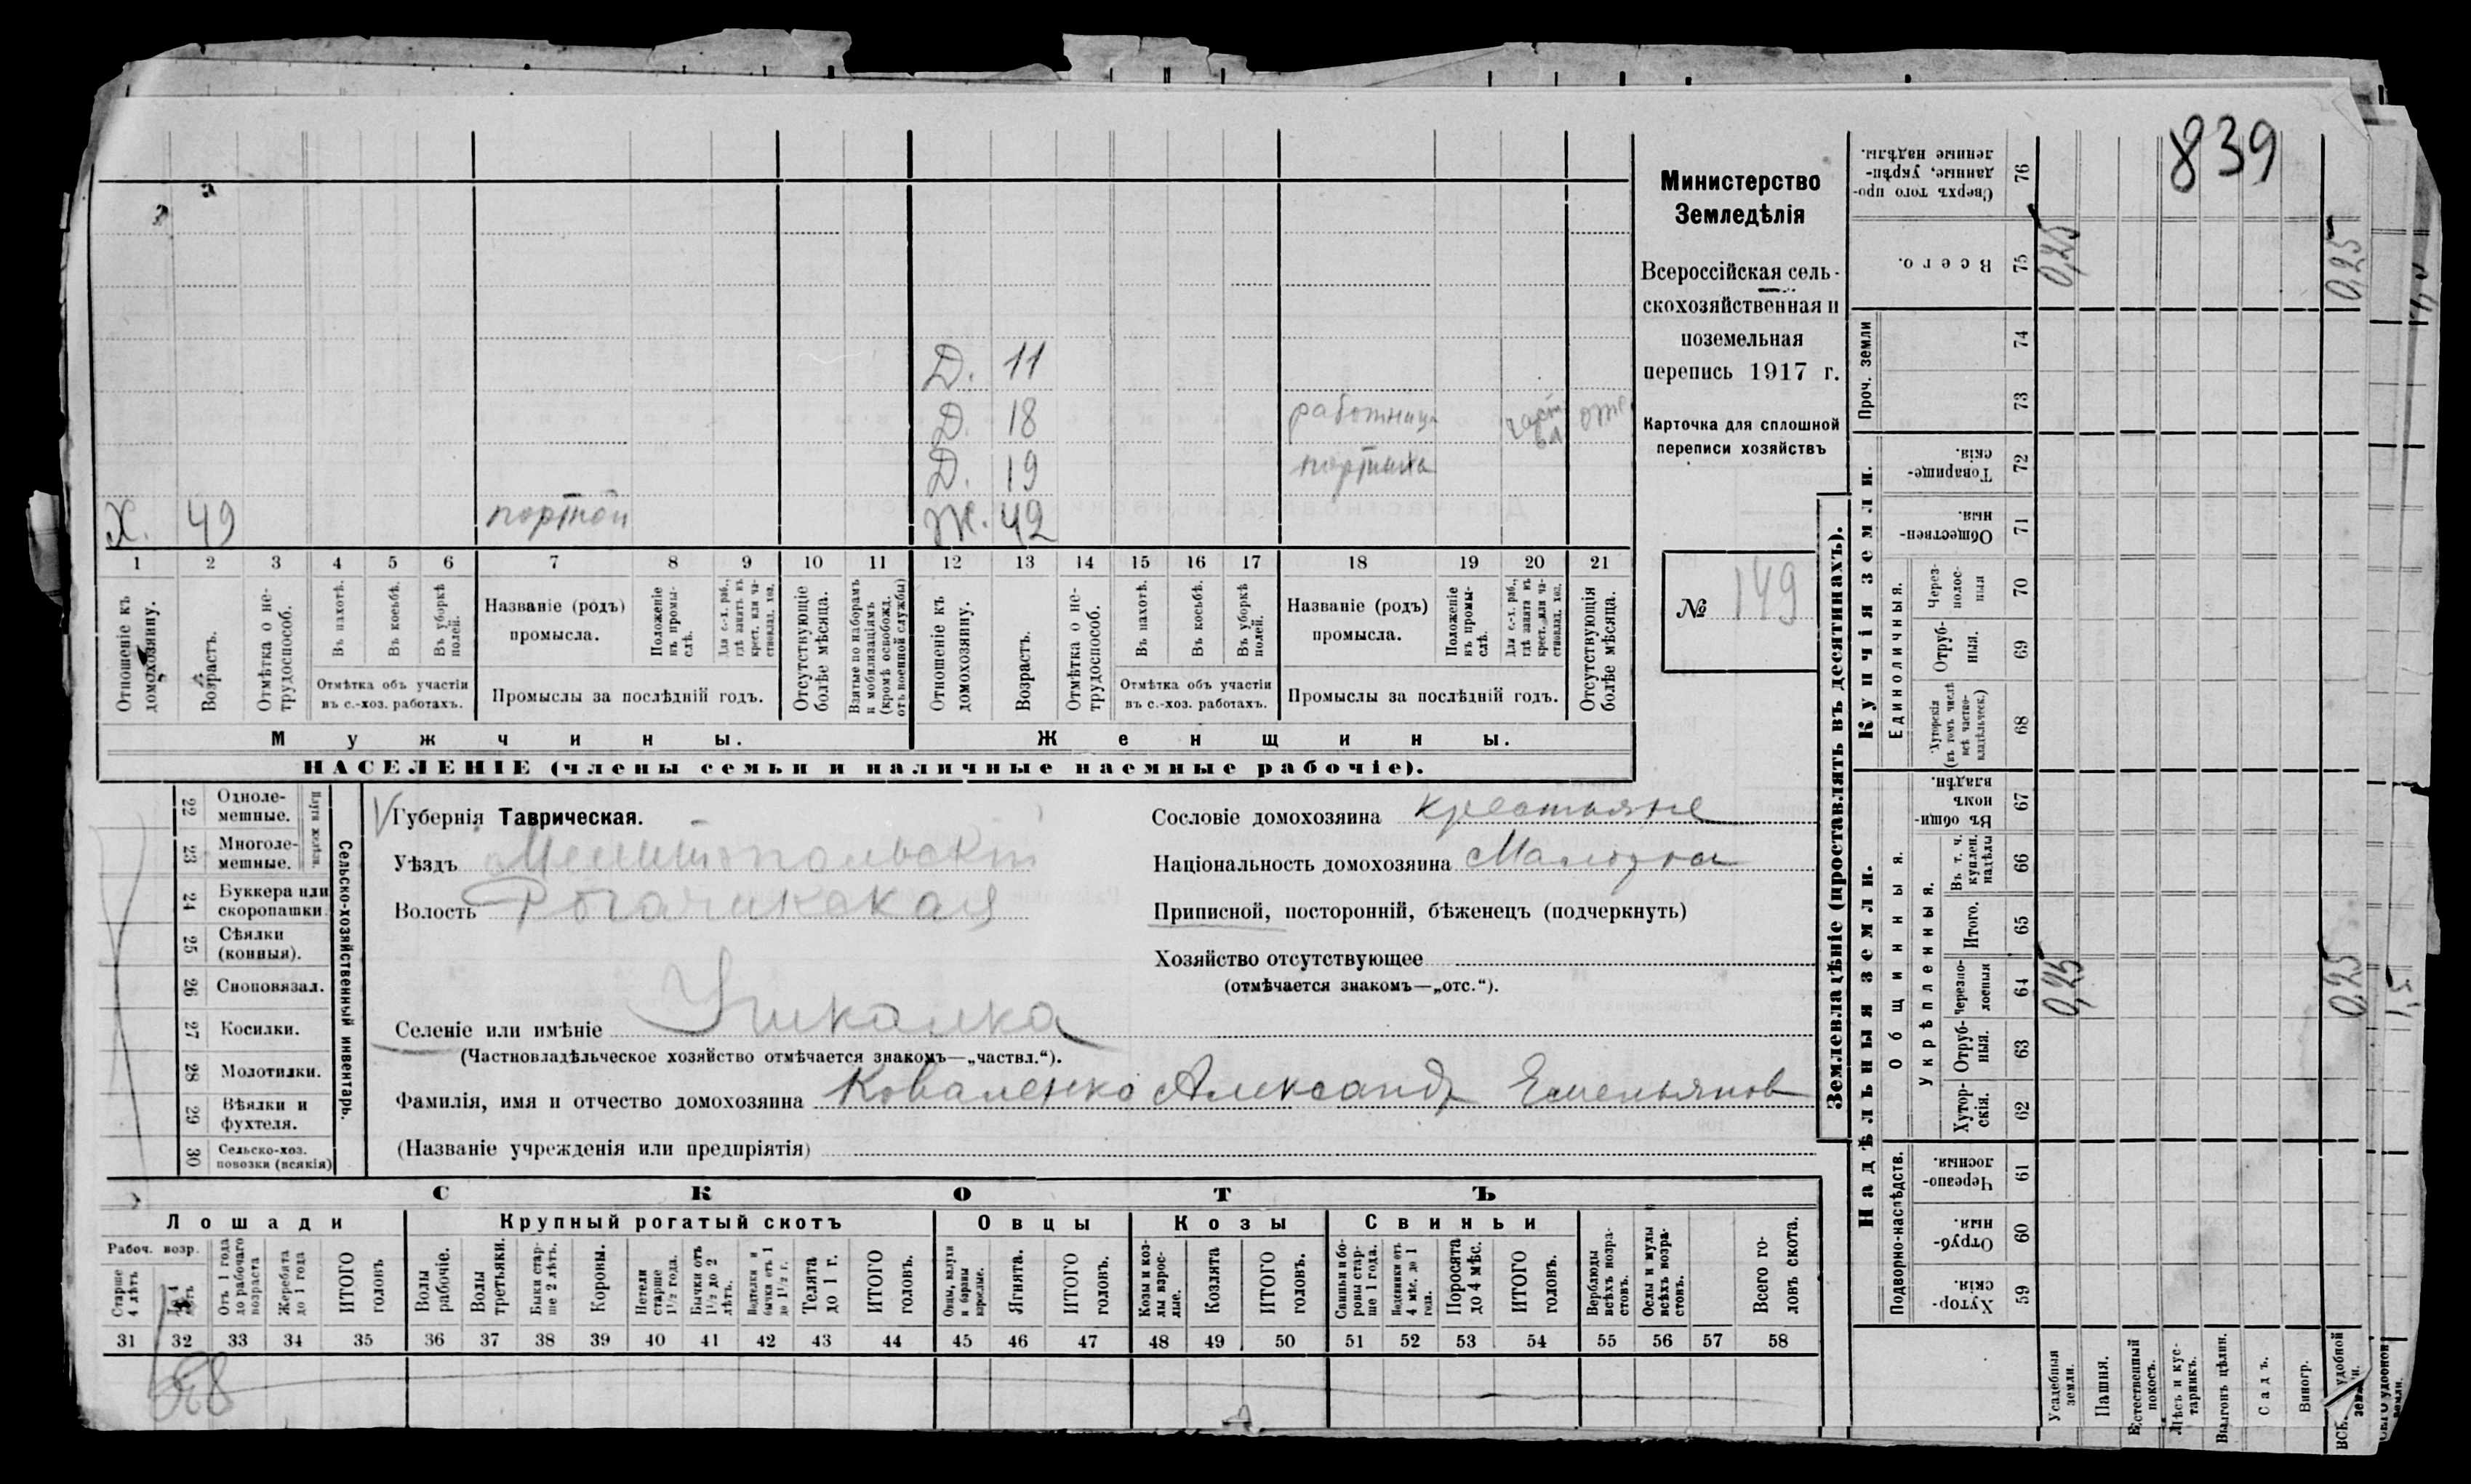 839
Министерство
Земледѣлія
Всероссійская сель-
скохозяйственная и
поземельная
перепись 1917 г.
Карточка для сплошной
переписи хозяйствъ
№ 149
Д. 11
Д. 18 работница част вл отс
Д. 19 портниха
Х. 49 портной Ж. 42
1 2 3 4 5 6 7 8 9 10 11 12 13 14 15 16 17 18 19 20 21
Отношеніе къ домохозяину.
Возрастъ.
Отмѣтка о не-трудоспособ.
Въ пахотѣ.
Въ косьбѣ.
Въ уборкѣ полей.
Отмѣтка объ участіи
въ с.-хоз. работахъ.
Названіе (родъ)
промысла.
Положеніе въ промы-слѣ.
Для с.-х. раб., гдѣ занятъ въ крест. или ча-стновлад. хоз.
Промыслы за послѣдній годъ.
Отсутствующіе болѣе мѣсяца.
Взятые по наборамъ и мобилизаціямъ (кромѣ освобожд. отъ военной службы)
Отношеніе къ домохозяину.
Возрастъ.
Отмѣтка о не-трудоспособ.
Въ пахотѣ.
Въ косьбѣ.
Въ уборкѣ полей.
Отмѣтка объ участіи
въ с.-хоз. работахъ.
Названіе (родъ)
промысла.
Положеніе въ промы-слѣ.
Для с.-х. раб., гдѣ занята въ крест. или ча-стновлад. хоз.
Промыслы за послѣдній годъ.
Отсутствующія болѣе мѣсяца.
Мужчины. Женщины.
НАСЕЛЕНІЕ (члены семьи и наличные наемные рабочіе).
Сельско-хозяйственный инвентарь.
22 Одноле-мешные.
23 Многоле-мешные.
24 Буккера или скоропашки
25 Сѣялки (конныя).
26 Сноповязал.
27 Косилки.
28 Молотилки.
29 Вѣялки и фухтеля.
30 Сельско-хоз. повозки (всякія)
Губернія Таврическая.
Уѣздъ Мелитопольскій
Волость Рогачикская
Селеніе или имѣніе
(Частновладѣльческое хозяйство отмѣчается знакомъ—„частвл.“).
Фамилія, имя и отчество домохозяина Коваленко Александр Емельянов
(Названіе учрежденія или предпріятія)
Сословіе домохозяина крестьяне
Національность домохозяина
Приписной, посторонній, бѣженецъ (подчеркнуть)
Хозяйство отсутствующее
(отмѣчается знакомъ—„отс.“).
СКОТЪ
Лошади Крупный рогатый скотъ Овцы Козы Свиньи
Рабоч. возр.
Старше 4 лѣтъ
До 4 лѣтъ
Отъ 1 года до рабочаго возраста
Жеребята до 1 года
ИТОГО головъ
Волы рабочіе.
Волы третьяки.
Быки стар-ше 2 лѣтъ.
Коровы.
Нетели старше 1½ года.
Бычки отъ 1½ до 2 лѣтъ.
Телята до 1 г.
ИТОГО головъ.
Овцы, валухи и бараны взрослые.
Ягнята.
ИТОГО головъ.
Козы и коз-лы взрос-лые.
Козлята
ИТОГО головъ.
Свиньи и бо-ровы стар-ше 1 года.
Подсвинки отъ 4 мѣс. до 1 года.
Поросята до 4 мѣс.
ИТОГО головъ.
Верблюды всѣхъ возра-стовъ.
Ослы и мулы всѣхъ возра-стовъ.
Всего го-ловъ скота.
31 32 33 34 35 36 37 38 39 40 41 42 43 44 45 46 47 48 49 50 51 52 53 54 55 56 57 58
Землевладѣніе (проставлять въ десятинахъ).
Надѣльныя земли. Купчія земли. Проч. земли
Подворно-наслѣдств.
Общинныя.
Укрѣпленныя.
Единоличныя.
59 Хутор-скія.
60 Отруб-ныя.
61 Черезпо-лосныя.
62 Хутор-скія.
63 Отруб-ныя.
64 Черезпо-лосныя
65 Итого.
66 Въ т. ч. куплен. надѣлы
67 Въ общи-номъ владѣн.
68 Хуторскія (въ томъ числѣ всѣ частно-владѣльческ.)
69 Отруб-ныя.
70 Через-полос-ныя
71 Обществен-ныя.
72 Товарище-скія.
73
74
75 Всего.
76 Сверхъ того про-данные, укрѣп-ленные надѣлы.
Усадебныя земли. 0,25 0,25
Пашня.
Естественный покосъ.
Лѣсъ и кус-тарникъ.
Выгонъ цѣлин.
Садъ.
Виногр.
удобной 0,25 0,25